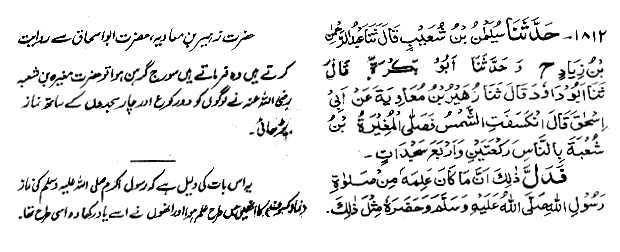 ۱۸۱۲- حَدَّثَنَا سُلَیْمٰنُ بْنُ شُعَیْبٍ قَالَ ثَنَا عَبْدُ الرَّحْمٰنِ
بْنُ زِیَادٍ ح وَحَدَّثَنَا أَبُوْ بَکْرَةَ قَالَ
ثَنَا أَبُوْ دَاوٗدَ قَالَ ثَنَا زُهَیْرُ بْنُ مُعَاوِیَةَ عَنْ أَبِیْ
إِسْحٰقَ قَالَ انْکَسَفَتِ الشَّمْسُ فَصَلَّی الْمُغِیْرَةُ بْنُ
شُعْبَةَ بِالنَّاسِ رَکْعَتَیْنِ وَاَرْبَعَ سَجَدَاتٍ۔
فَدَلَّ ذٰلِكَ اَنَّ مَا کَانَ عَلِمَهٗ مِنْ صَلٰوةِ
رَسُوْلِ اللهِ صَلَّی اللهُ عَلَیْهِ وَسَلَّمَ وَحَضَرَهٗ مِثْلُ ذٰلِكَ۔
حضرت زہیر بن معاویہ، حضرت ابو اسحاق سے روایت
کرتے ہیں وہ فرماتے ہیں سورج گرہن ہوا تو حضرت مغیرہ بن شعبہ
رضی اللہ عنہ نے لوگوں کو دو رکوع اور چار سجدوں کے ساتھ نماز
پڑھائی۔
یہ اس بات کی دلیل ہے کہ رسول اکرم صلی اللہ علیہ وسلم کی نماز
کا انھیں جس طرح علم ہوا اور انھوں نے اسے یاد رکھا وہ اسی طرح تھا۔